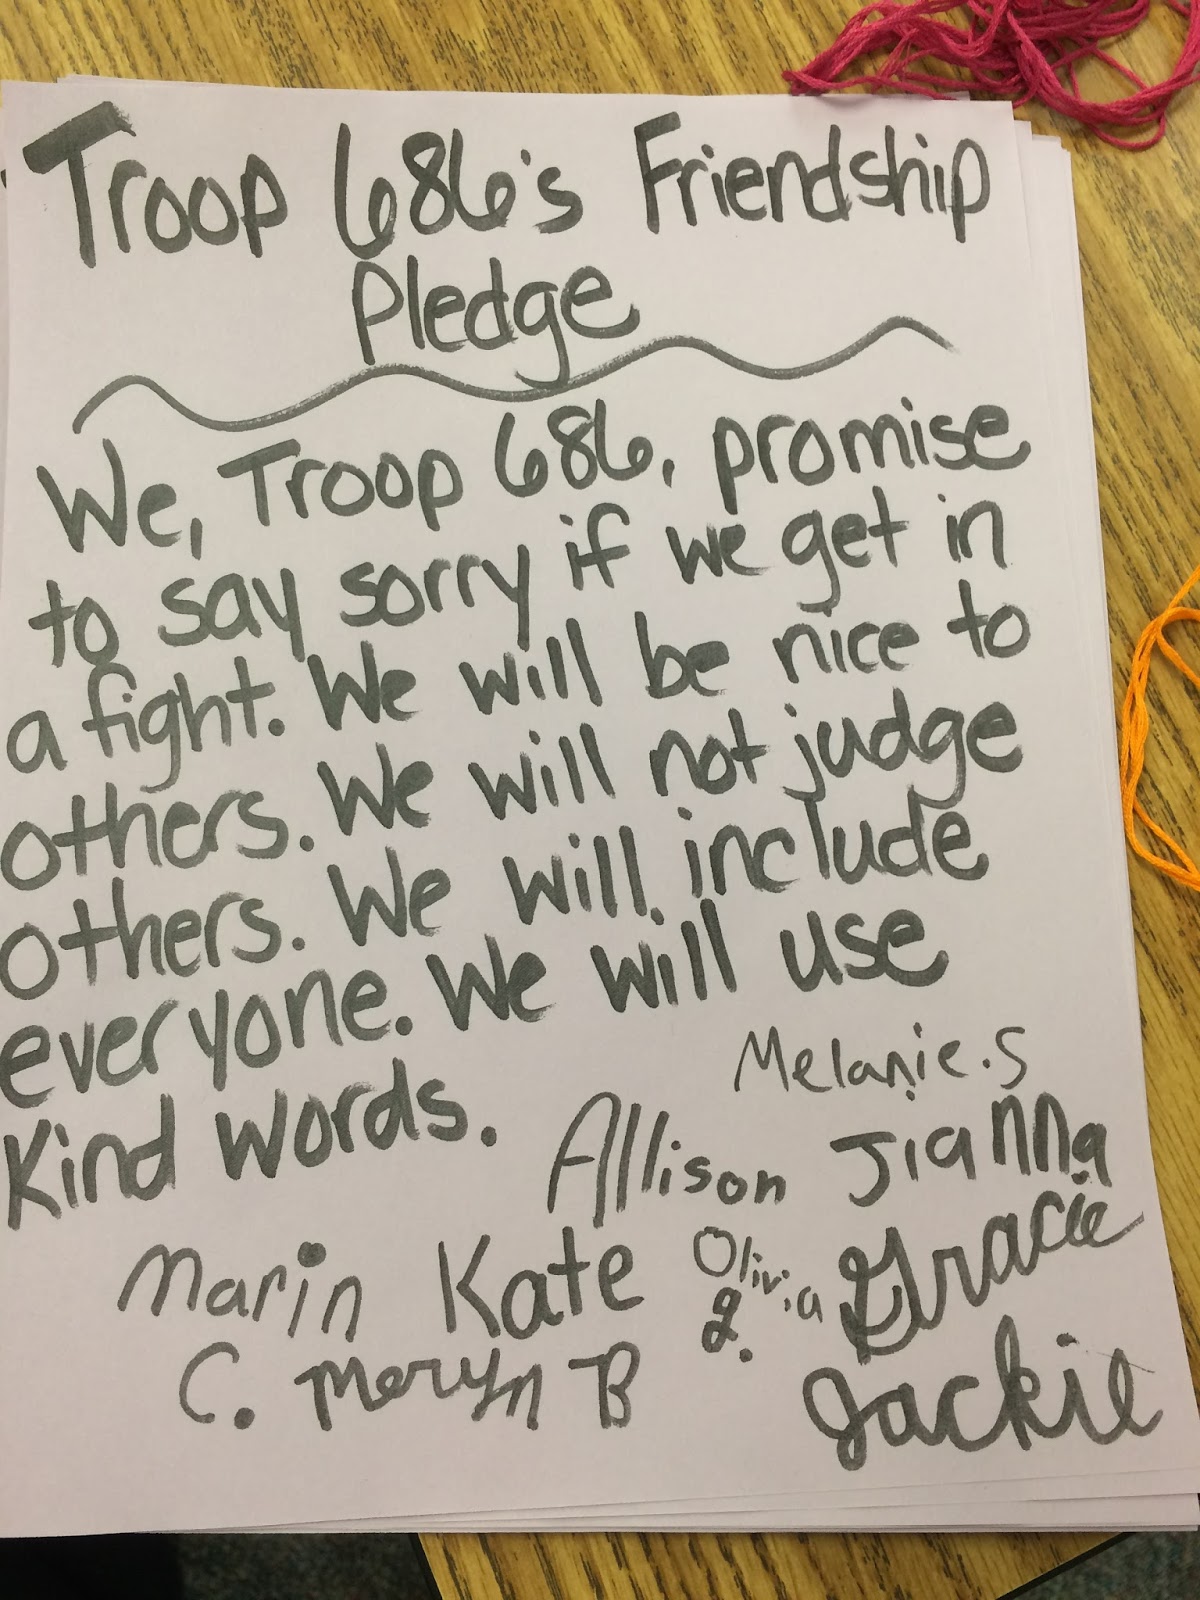 Troop 686's Friendship
Pledge
We, Troop 686, promise
to say sorry if we get in
a fight. We will be nice to
others. We will not judge
others. We will include
everyone. We will use
Kind words.
Melanie.S
Allison Jianna
Marin C.
Kate
Olivia g.
Gracie
Meryn B
Jackie